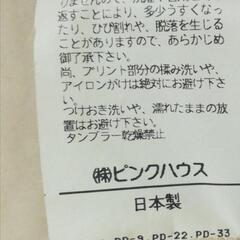 返すことにより、多少うすくなっ
たり、ひび割れや、脱落を生じる
ことがありますので、あらかじめ
御了承下さい。
尚、プリント部分の揉み洗いや、
アイロンがけは絶対にお避け下さ
い。
つけおき洗いや、濡れたままの放
置はお避け下さい。
タンブラー乾燥禁止
㈱ピンクハウス
日本製
PD-9. PD-22. PD-33